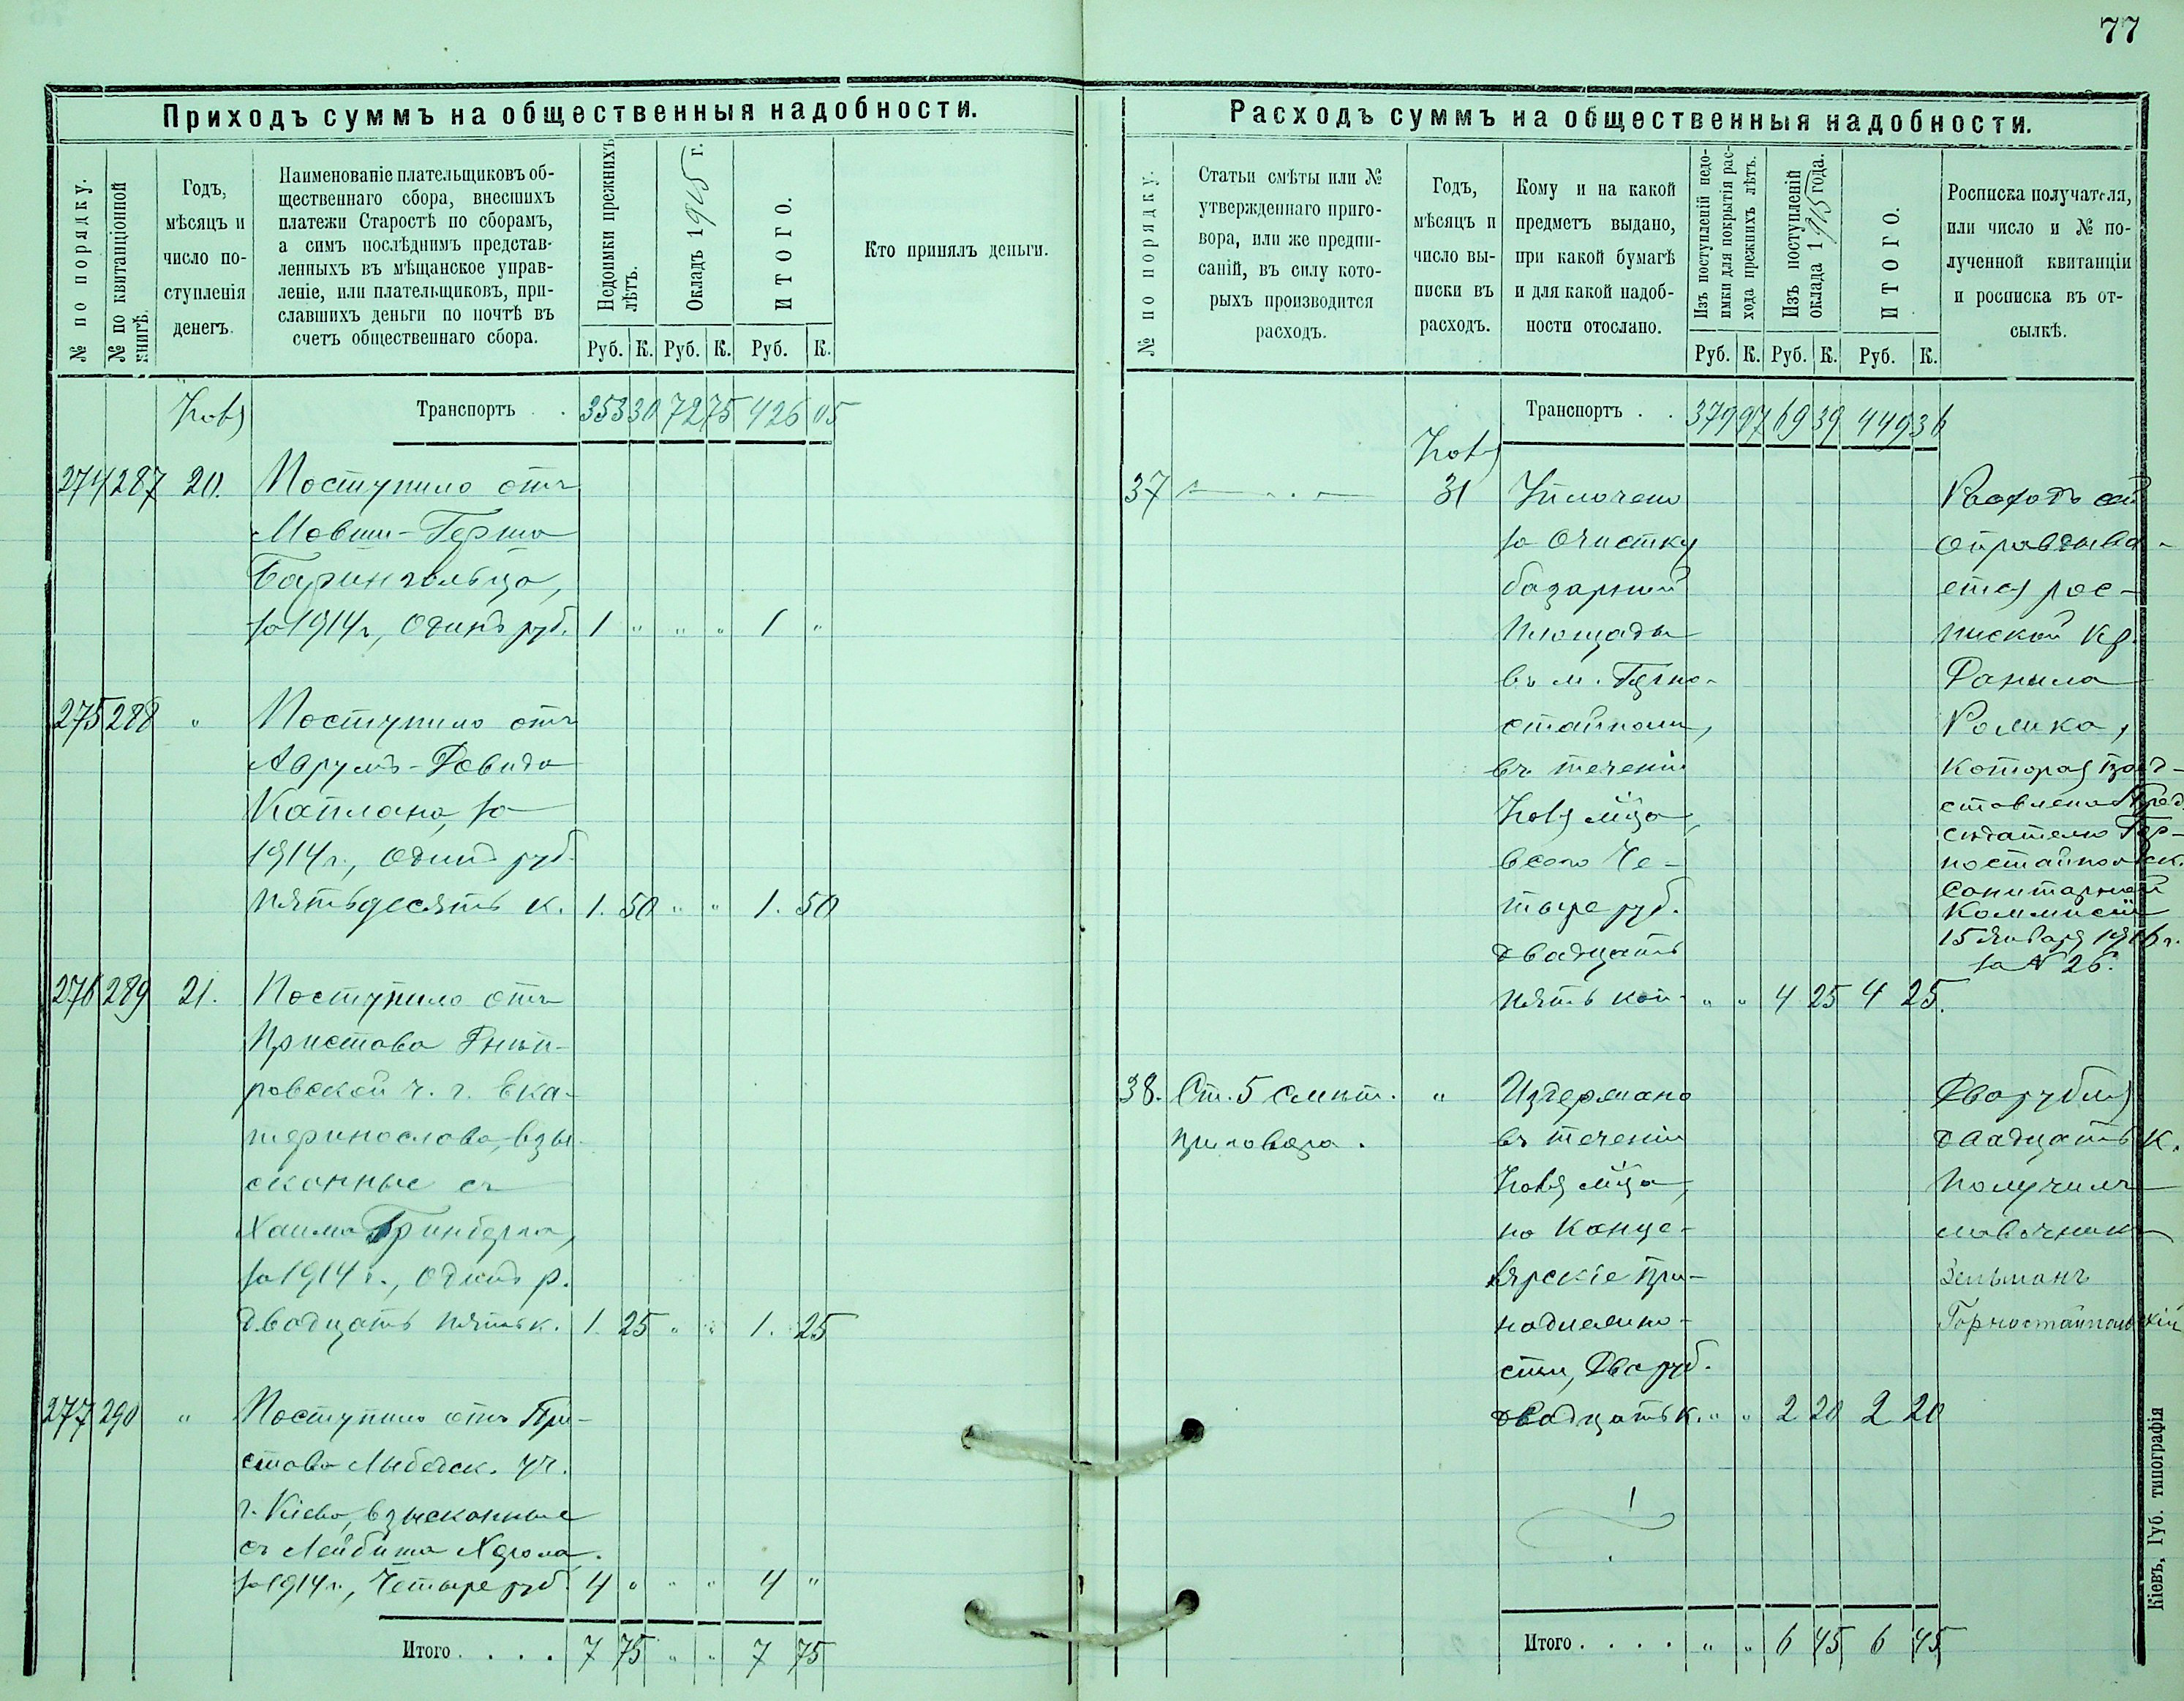 77
Приходъ суммъ на общественныя надобности.
№ по порядку.
№ по квитанціонной книгѣ.
Годъ,
мѣсяцъ и
число по-
ступленія
денегъ.
Наименованіе плательщиковъ об-
щественнаго сбора, внесшихъ
платежи Старостѣ по сборамъ,
а симъ послѣднимъ представ-
ленныхъ въ мѣщанское управ-
леніе, или плательщиковъ, при-
славшихъ деньги по почтѣ въ
счетъ общественнаго сбора.
Недоимки прежнихъ
лѣтъ.
Окладъ 1915 г.
ИТОГО.
Кто принялъ деньги.
Руб. К. Руб. К. Руб. К.
Нояб Транспортъ . . 353 30 72 75 426 05
274 287 20. Поступило отъ
Мовши-Герша
за 1914 г., Одинъ руб. 1 " " " 1 "
275 288 " Поступило отъ
Аврумъ-Довида
Каплана, за
1914 г., Одинъ руб.
пятьдесятъ к. 1. 50 " " 1. 50
276 289 21. Поступило отъ
Пристава Днѣп-
ровской ч. г. Ека-
теринослава, взы-
сканные съ
Хаима Гринберга,
за 1914 г., Одинъ р.
двадцать пять к. 1. 25 " " 1. 25
277 290 " Поступило отъ При-
става Лыбедск. уч.
г. Кіева, взысканные
съ
за 1914 г., Четыре руб. 4 " " " 4 "
Итого . . . . 7 75 " " 7 75
Расходъ суммъ на общественныя надобности.
№ по порядку.
Статьи смѣты или №
утвержденнаго приго-
вора, или же предпи-
саній, въ силу кото-
рыхъ производится
расходъ.
Годъ,
мѣсяцъ и
число вы-
писки въ
расходъ.
Кому и на какой
предметъ выдано,
при какой бумагѣ
и для какой надоб-
ности отослано.
Изъ поступленій недо-
имки для покрытія рас-
хода прежнихъ лѣтъ.
Изъ поступленій
оклада 1915 года.
ИТОГО.
Росписка получателя,
или число и № по-
лученной квитанціи
и росписка въ от-
сылкѣ.
Руб. К. Руб. К. Руб. К.
Транспортъ . . 379 97 69 39 449 36
Нояб
37 31 Уплочено
за Очистку
базарной
площади
въ м. Горно-
стайполи,
въ теченіи
Нояб м-ца,
всего Че-
тыре руб.
двадцать
пять коп. " " 4 25 4 25.
Расходъ сей
оправдыва-
ется рос-
пиской Кр.
Данила
Ромика,
которая пред-
ставлена Пред-
сѣдателю Гор-
ностайпольск.
Санитарной
Коммисіи
15 Января 1916 г.
за № 26.
38. Ст. 5 смѣт.
приговора.
" Издержано
въ теченіи
Нояб м-ца,
на Канце-
лярскіе при-
надлежно-
сти, Два руб.
двадцать к. " " 2 20 2 20
Два рубля
двадцать к.
Получилъ
лавочникъ
Зельманъ
Горностайпольскій
Итого . . . . " " 6 45 6 45
Кіевъ, Губ. типографія